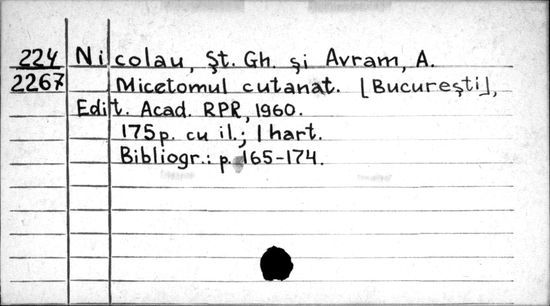 224 Nicolau, Șt. Gh. și Avram, A.
2267 Micetomul cutanat. [București],
Edit. Acad. RPR, 1960.
175 p. cu il.; 1 hart.
Bibliogr.: p. 165-174.